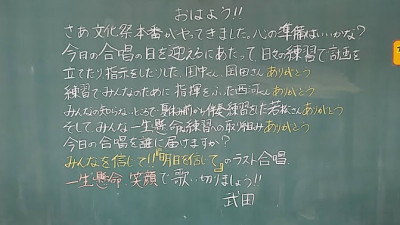 おはよう!!
さあ文化祭本番がやってきました。心の準備はいいかな?
今日の合唱の日を迎えるにあたって、日々の練習で計画を
立てたり指示をしたりした、田中くん、岡田さんありがとう
練習でみんなのために指揮をふった西河くんありがとう
みんなの知らないところで夏休み前から伴奏練習をした若松さんありがとう
そして、みんな一生懸命な練習への取り組みありがとう
今日の合唱を誰に届けますか?
みんなを信じて!!『明日を信じて』のラスト合唱
一生懸命 笑顔で歌い切りましょう!!
武田